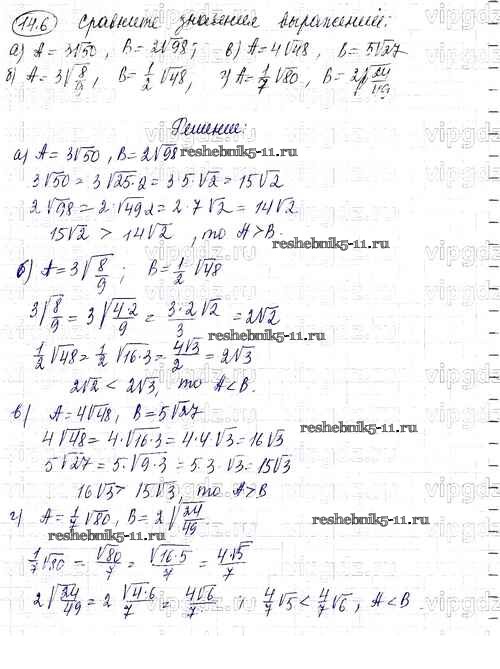 14.6 Сравните значения выражений:
а) A = 3√50, B = 2√98; в) A = 4√48, B = 5√27
б) A = 3√8/9, B = 1/2 √48, г) A = 1/7 √80, B = 2√24/49
Решение:
а) A = 3√50, B = 2√98
reshebnik5-11.ru
3√50 = 3√25·2 = 3·5·√2 = 15√2
2√98 = 2·√49·2 = 2·7√2 = 14√2
15√2 > 14√2, то A > B.
reshebnik5-11.ru
б) A = 3√8/9; B = 1/2 √48
3√8/9 = 3√4·2/9 = 3·2√2/3 = 2√2
reshebnik5-11.ru
1/2 √48 = 1/2 √16·3 = 4√3/2 = 2√3
2√2 < 2√3, то A < B.
в) A = 4√48, B = 5√27
reshebnik5-11.ru
4√48 = 4·√16·3 = 4·4√3 = 16√3
5√27 = 5·√9·3 = 5·3·√3 = 15√3
16√3 > 15√3, то A > B
г) A = 1/7 √80, B = 2√24/49
reshebnik5-11.ru
1/7 √80 = √80/7 = √16·5/7 = 4√5/7
2√24/49 = 2 √4·6/7 = 4√6/7; 4/7 √5 < 4/7 √6, A < B.